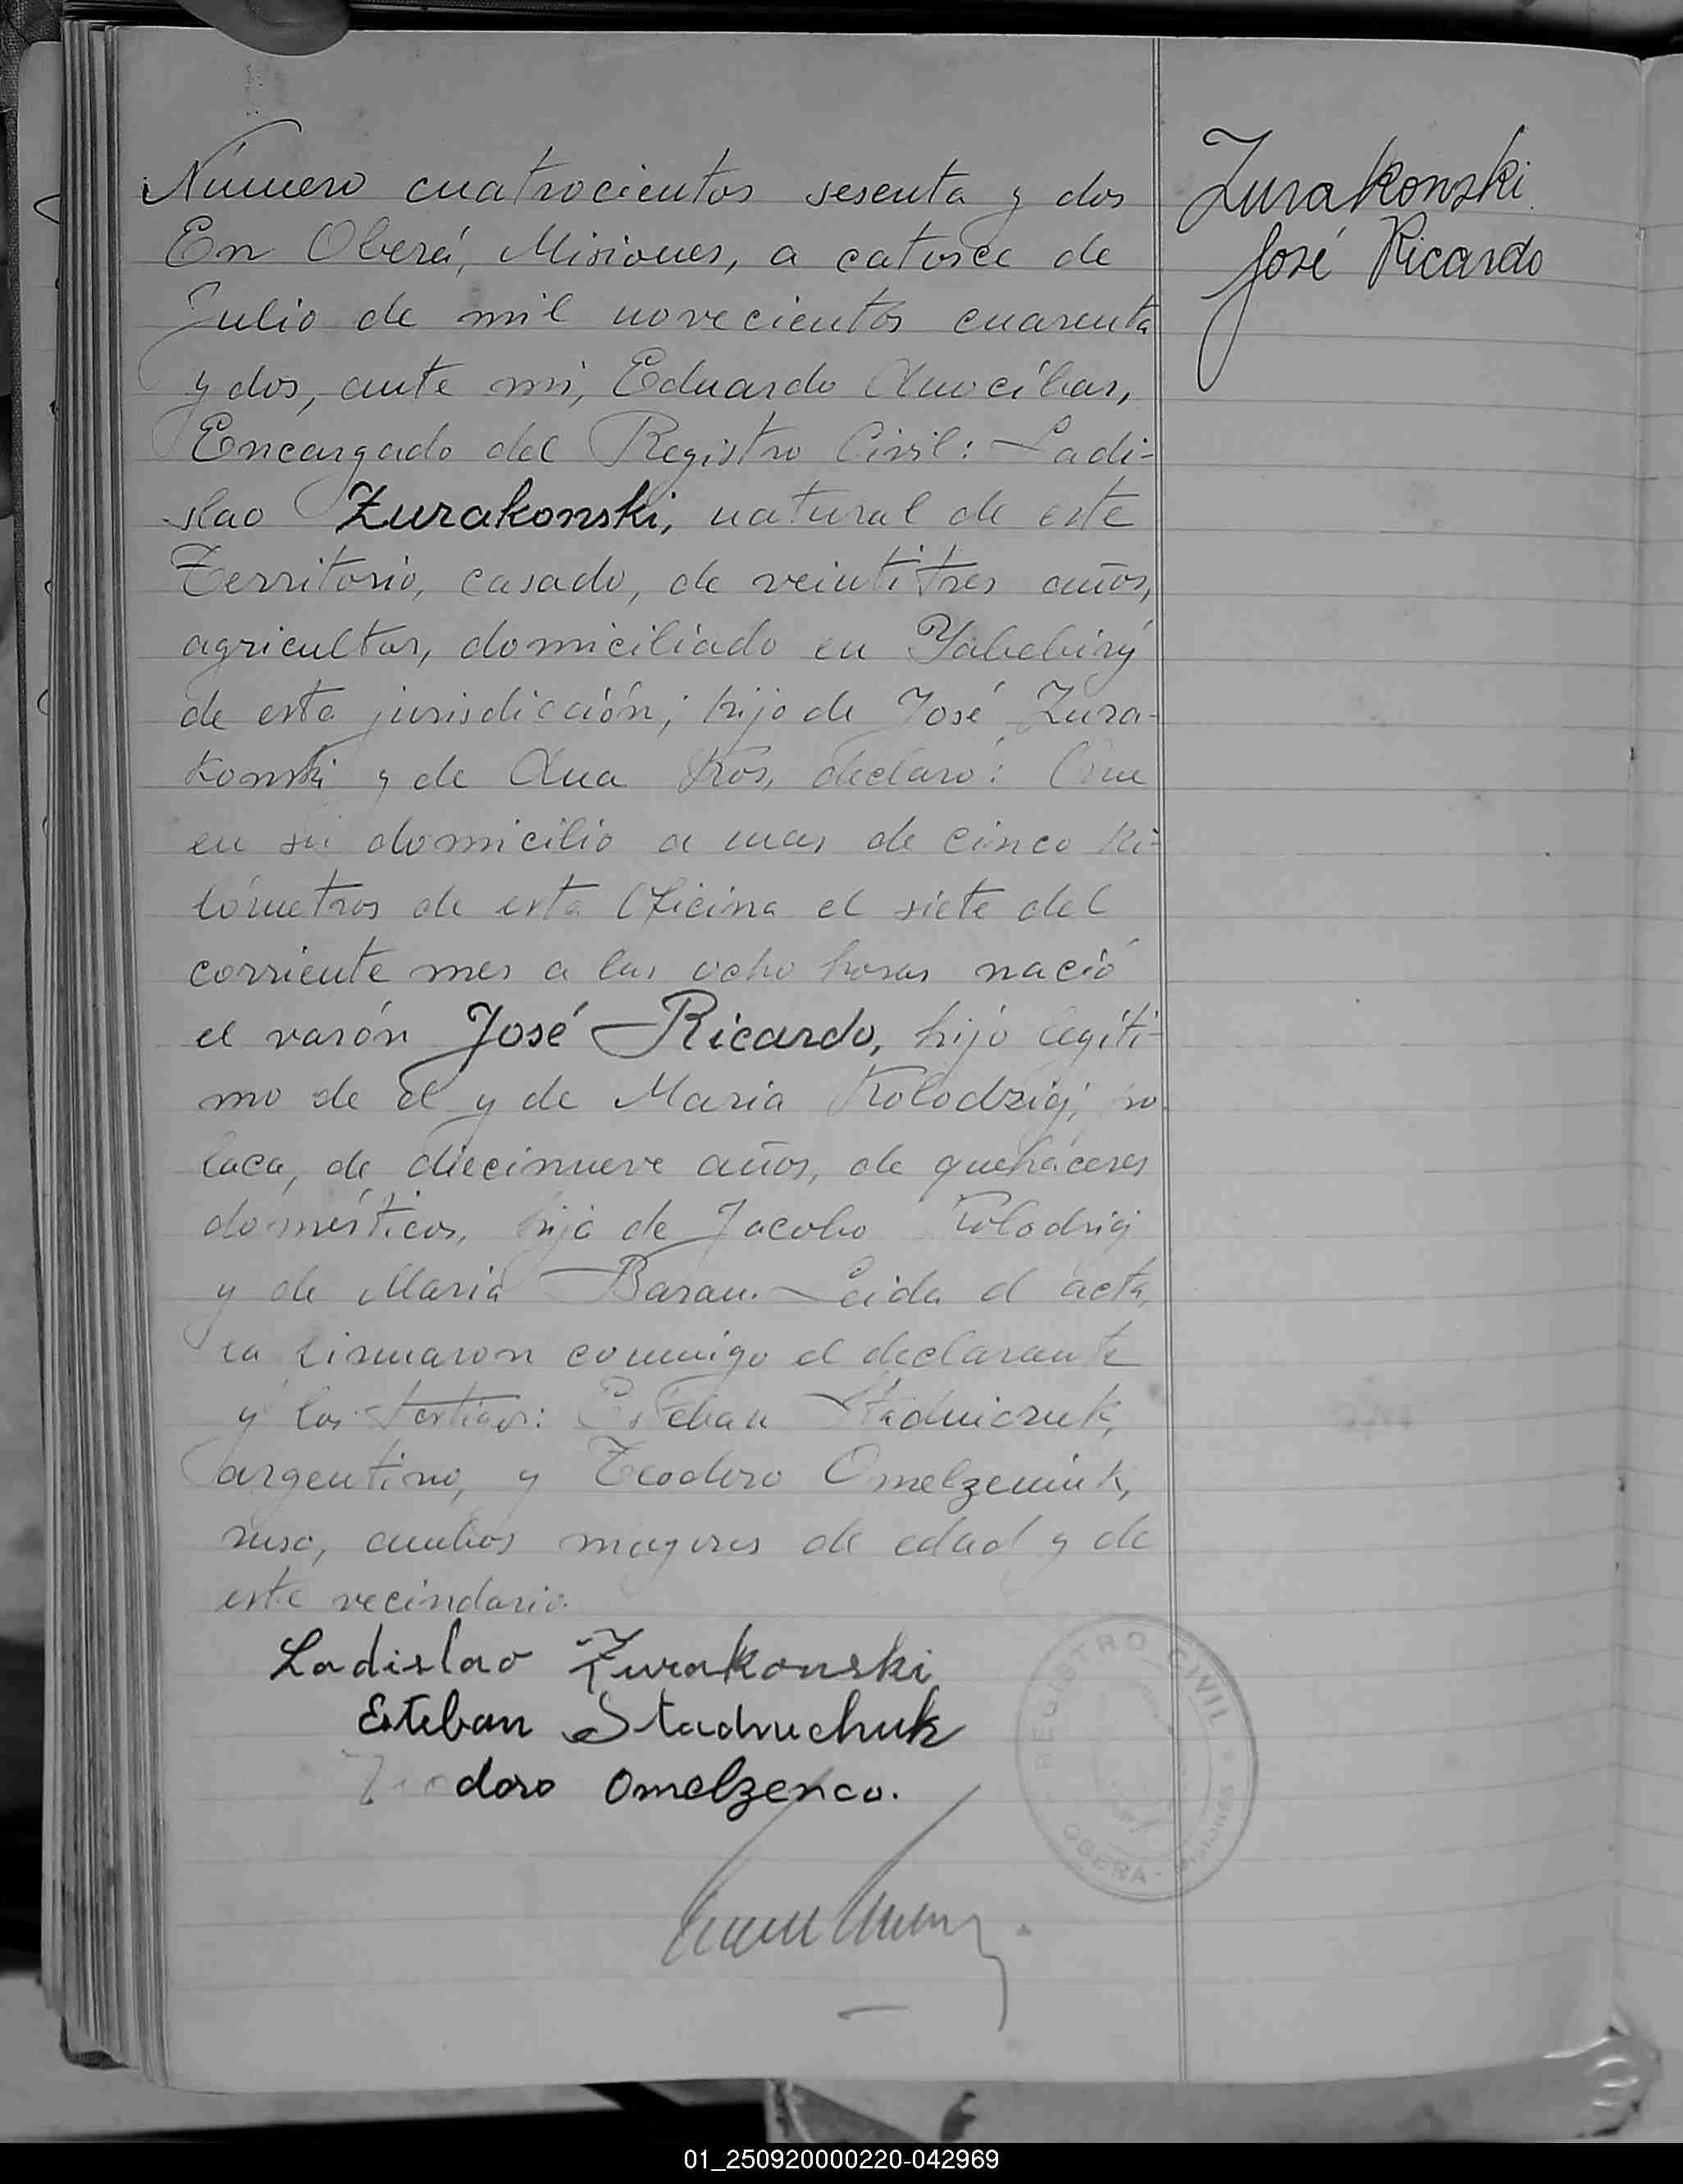 Número cuatrocientos sesenta y dos
En Oberá, Misiones, a catorce de
Julio de mil novecientos cuarenta
y dos, ante mi, Eduardo Anocíbar,
Encargado del Registro Civil: Ladi-
slao Zurakonski, natural de este
Territorio, casado, de veintitres años,
agricultor, domiciliado en Yabebirý
de esta jurisdicción; hijo de José Zura-
konski y de Ana Kos, declaró: Que
en su domicilio a mas de cinco ki-
lómetros de esta Oficina el siete del
corriente mes a las ocho horas nació
el varón José Ricardo, hijo legíti-
mo de él y de Maria Kolodziej, po-
laca, de diecinueve años, de quehaceres
domésticos, hija de Jacobo Kolodziej
y de Maria Baran. Leida el acta,
la firmaron conmigo el declarante
y los testigos: Esteban Stadniczuk,
argentino, y Teodoro Omelzeniuk,
ruso, ambos mayores de edad y de
este vecindario.
Ladislao Zurakonski
Esteban Stadnichuk
Teodoro Omelzenco.
Zurakonski
José Ricardo
REGISTRO CIVIL
OBERA - MISIONES
01_250920000220-042969